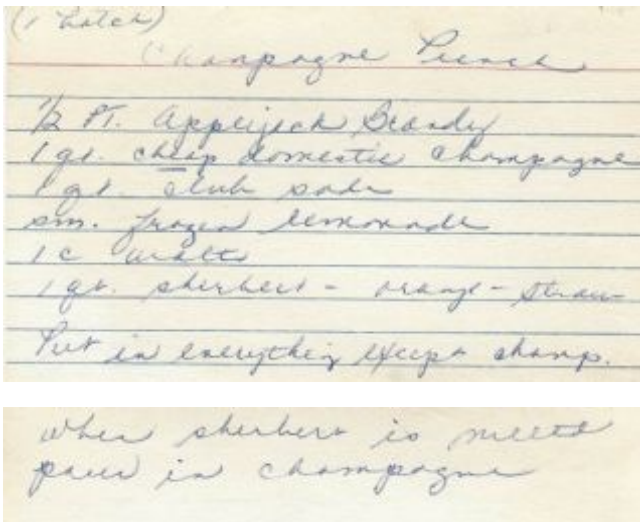 (1 batch)
Champagne Punch
1/2 PT. Applejack Brandy
1 qt. cheap domestic champagne
1 qt. club soda
sm. frozen lemonade
1 c water
1 qt. sherbert - orange - straw-
Put in everything except champ.
When sherbert is melted
pour in champagne